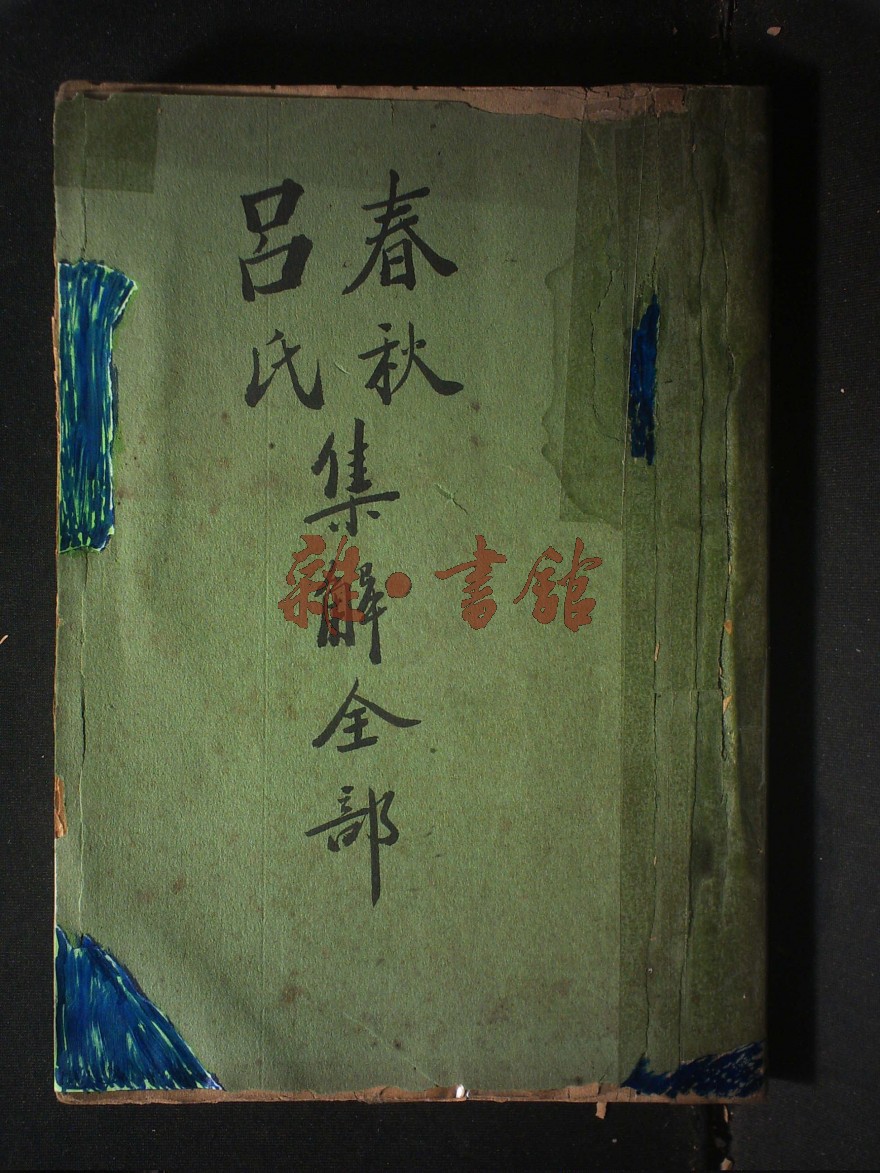 春秋
呂氏
集解全部
雜·書館